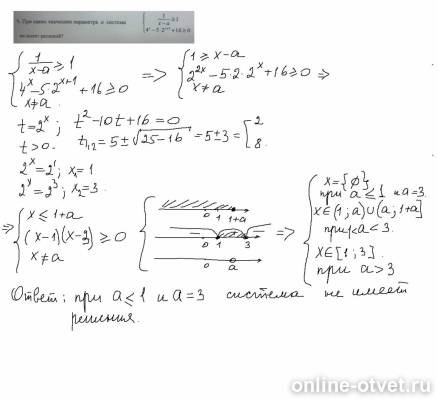 5. При каких значениях параметра a система { 1/(x-a) ≥ 1
4^x - 5·2^(x+1) + 16 ≥ 0
не имеет решений?
{ 1/(x-a) ≥ 1
4^x - 5·2^(x+1) + 16 ≥ 0
x ≠ a
=> { 1 ≥ x-a
2^(2x) - 5·2·2^x + 16 ≥ 0 =>
x ≠ a
t = 2^x ; t² - 10t + 16 = 0
t > 0. t₁,₂ = 5 ± √(25-16) = 5 ± 3 = [ 2
8.
2^x = 2¹ ; x₁ = 1
2^x = 2³ ; x₂ = 3.
=> { x ≤ 1+a
(x-1)(x-3) ≥ 0
x ≠ a
{ 0 1 1+a
0 1 3
0 a
=> { x = {∅}
при a ≤ 1 и a = 3.
x ∈ (1; a) ∪ (a; 1+a]
при 1 < a < 3.
x ∈ [1; 3]
при a > 3
Ответ: при a ≤ 1 и a = 3 система не имеет
решения.
online-otvet.ru